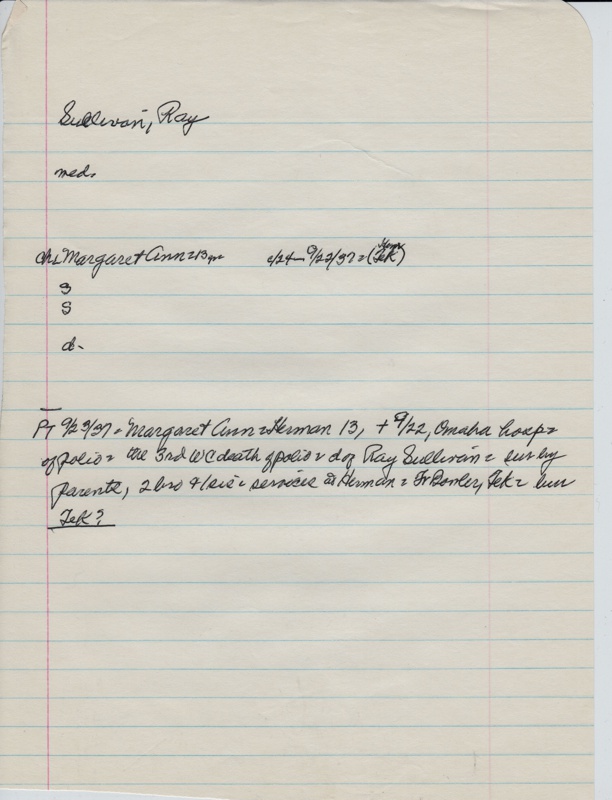 Sullivan, Ray
med.
ch1 Margaret Ann = 13 yrs c/24 - 9/22/37 = (Herm Tek)
3
S
d-
PT 9/23/37 = Margaret Ann = Herman 13, + 9/22, Omaha hosp =
of polio = the 3rd WC death of polio = d of Ray Sullivan = sur by
parents, 2 bro & 1 sis = services at Herman = Fr Tek = bur
Tek?